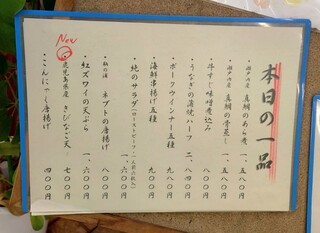 本日の一品
瀬戸内産 真鯛のあら煮 一、五八〇円
瀬戸内産 真鯛の骨蒸し 一、五八〇円
・牛すじ味噌煮込み 八〇〇円
・うなぎの蒲焼ハーフ 二、八〇〇円
・ポークウインナー五種 九八〇円
・海鮮串揚げ五種 九〇〇円
・鴨のサラダ(ローストビーフ・二人前位) 一、六〇〇円
ネブトの唐揚げ 八〇〇円
・紅ズワイの天ぷら 一、六〇〇円
New
鹿児島県産 きびなご天 七〇〇円
・こんにゃく唐揚げ 四〇〇円